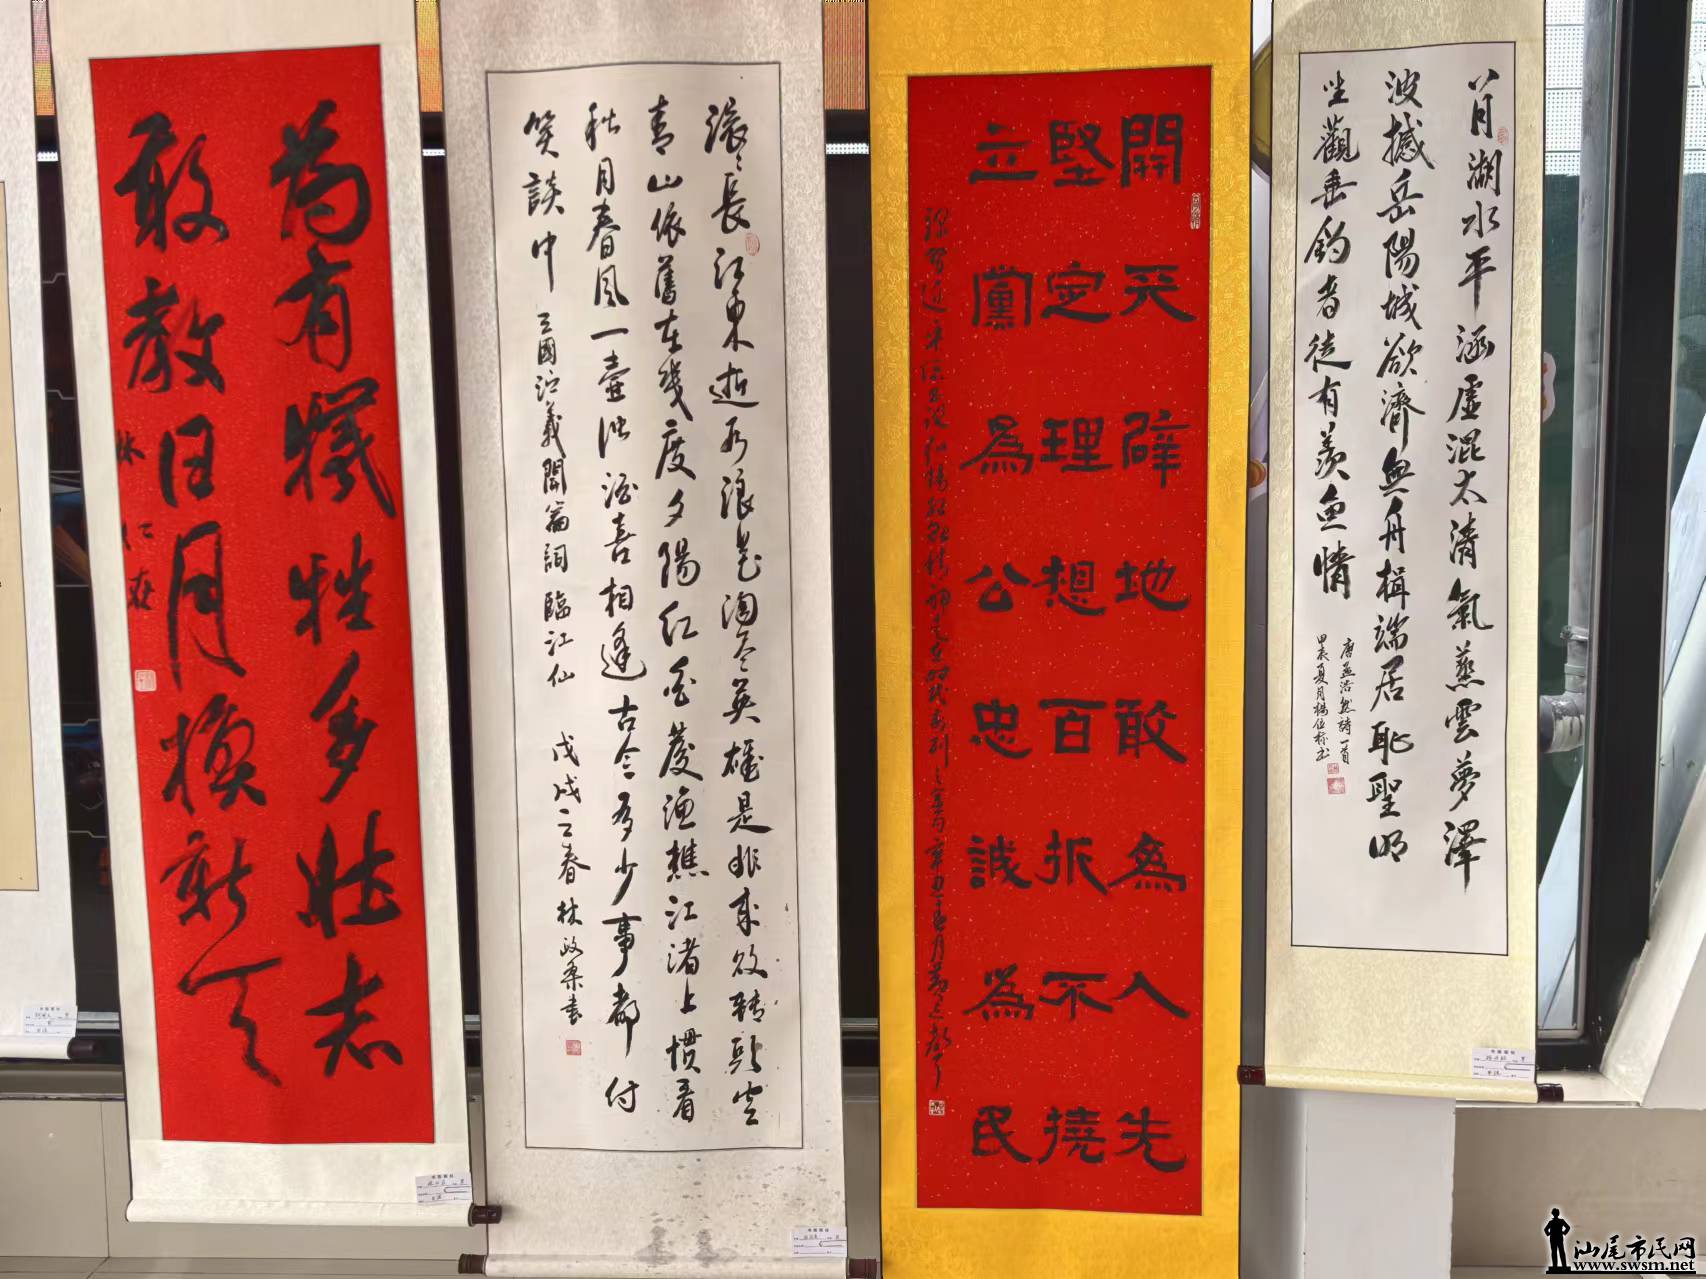 為有犧牲多壯志
敢教日月換新天
林仁在
滚〻長江東逝水浪花淘尽英雄是非成敗轉頭空
青山依舊在幾度夕陽紅白髮漁樵江渚上慣看
秋月春風一壺濁酒喜相逢古今多少事都付
笑談中 三國演義開篇詞臨江仙 戊戌之春 林政書
開天辟地敢為人先
堅定理想百折不撓
立黨為公忠誠為民
八月湖水平涵虛混太清氣蒸雲夢澤
波撼岳陽城欲濟無舟楫端居恥聖明
坐觀垂釣者徒有羨魚情
唐孟浩然詩一首
甲辰夏月楊位标书
汕尾市民网
www.swsm.net